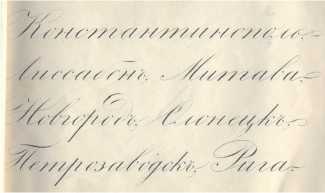 Константинополь
Лиссабонъ. Митава
Новгородъ. Олонецкъ.
Петрозаводскъ. Рига